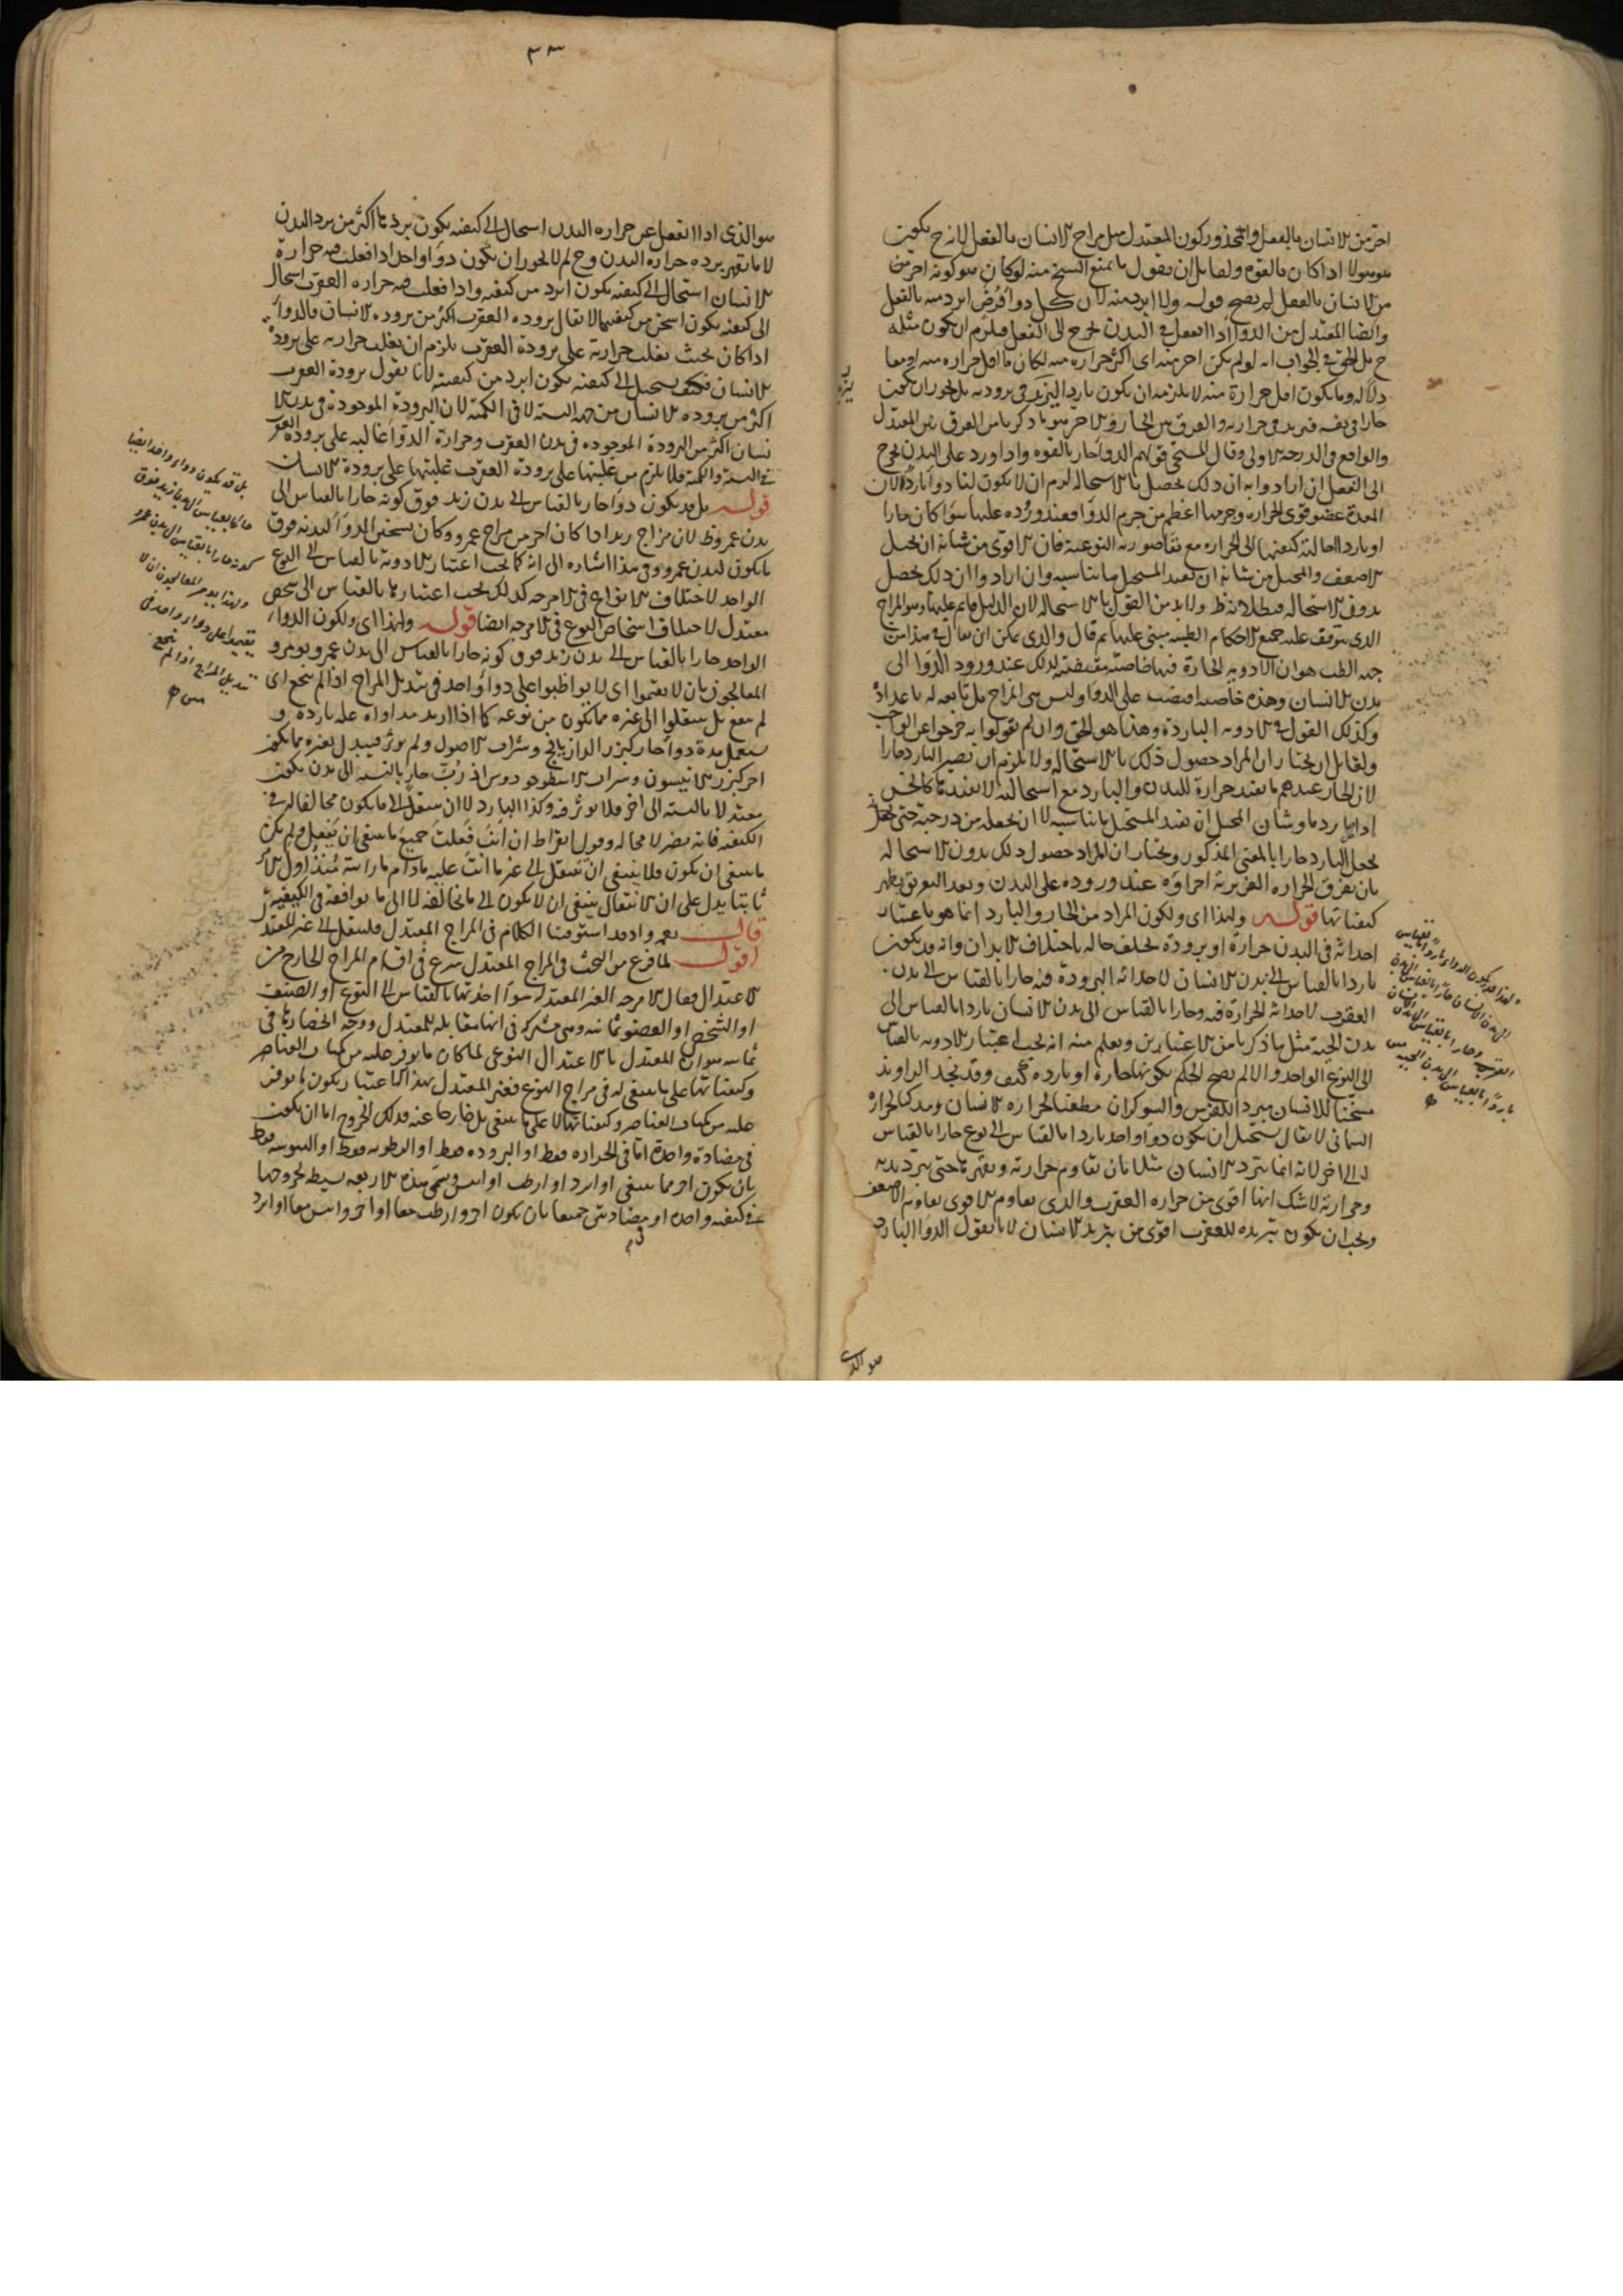 احر من الانسان بالفعل والمحذور كون المعتدل مثل مزاج الانسان بالفعل لانه ح يكون
هو هو لا اذا كان بالقوه ولقايل ان يقول ما يمنع الشيخ منه لو كان هو كونه احر من
من الانسان بالفعل لم يصح قوله ولا ابرد منه لان كل دوا فرض ابرد منه بالفعل
وايضا المعتدل من الدوا اذا انفعل في البدن خرج الى الفعل فيلزم ان يكون مثله
ح بل الحق في الجواب انه لو لم يكن احر منه اى اكثر حرارة منه لكان ما اقل حراره منه او مساويا
وما يكون اقل حرارة منه لا يلزم ان يكون باردا ليزيد في برودته بل يجوز ان يكون
حارا في نفسه فيزيد في حرارته والفرق بين الحار والاحر هو ما ذكر
والواقع في الدرجة الاولى وقال المسيحي قولهم الدوا حار بالقوه واذا ورد على البدن يخرج
الى الفعل ان ارادوا به ان ذلك يحصل بالاستحاله لزم ان لا يكون لنا دوا بارد لان
المعدة عضو قوى الحراره وجرمها اعظم من جرم الدوا فعند وروده عليها سوا كان حارا
او باردا احالته كيفيتها الى الحراره مع بقا صورته النوعية فان الاقوى من شانه ان يحيل
الاضعف والمحيل من شانه ان يفيد المستحيل ما يناسبه وان ارادوا ان ذلك يحصل
بدون الاستحاله فبطلانه ظ ولا بد من القول بالاستحاله لان الدليل قايم عليها وهو المزاج
الذى يتوقف عليه جميع الاحكام الطبيه مبنى عليها ثم قال والذى يمكن ان يقال في هذا من
جهه الطب هو ان الادويه الحارة فيها خاصة مقتضيه لذلك عند ورود الدوا الى
بدن الانسان وهذه خاصيه افيضت على الدوا وليس هى المزاج بل تابعه له باعداد
وكذلك القول في الادويه الباردة وهذا هو الحق وان لم يقولوا به خرجوا عن الواجب
ولقايل ان يختار ان المراد حصول ذلك بالاستحاله ولا يلزم ان يصير البارد حارا
لان الحار عندهم ما يفيد حرارة للبدن والبارد مع استحالته لا يفيدها كالخس
اذا برد ما وشان المحيل ان يفيد المستحيل ما يناسبه لا ان يجعله من درجته حتى يلزم
يجعل البارد حارا بالمعنى المذكور ويختار ان المراد حصول ذلك بدون الاستحاله
بان يفرق الحراره الغريزية اجزاوه عند وروده على البدن وبعد التفرق يظهر
كيفياتها قوله ولهذا اى ولكون المراد من الحار والبارد انما هو باعتبار
احداثه في البدن حرارة او برودة يختلف حاله باختلاف الابدان وانه قد يكون
باردا بالقياس الى بدن الانسان لاحداثه البرودة فيه حارا بالقياس الى بدن
العقرب لاحداثه الحرارة فيه وحارا بالقياس الى بدن الانسان باردا بالقياس الى
بدن الحية مثل ما ذكرنا من الاعتبارين ويعلم منه انه يجب اعتبار الادويه بالقياس
الى النوع الواحد والا لم يصح الحكم بكونها حاره او بارده كيف وقد نجد الراوند
مسخنا للانسان مبردا للفرس والشوكران مطفيا لحراره الانسان ومذكيا لحرارة
السمانى لا يقال يستحيل ان يكون دوا واحد باردا بالقياس الى نوع حارا بالقياس
الى الاخر لانه انما يبرد الانسان مثلا بان يقاوم حرارته ويقهرها حتى يبرد بدنه
وحرارته لا شك انها اقوى من حراره العقرب والذى يقاوم الاقوى يقاوم الاضعف
ويجب ان يكون تبريده للعقرب اقوى من تبريده الانسان لانا نقول الدوا البارد
ولهذا قد يكون الدواء باردا بالقياس
الى بدن الانسان حارا بالقياس الى بدن
العقرب وحارا بالقياس الى بدن الانسان
باردا بالقياس الى بدن الحية
هو الذى
٣٣
هو الذى اذا انفعل عن حراره البدن استحال الى كيفيه يكون بردها اكثر من برد البدن
لا ما يقهر برده حراره البدن وح لم لا يجوز ان يكون دوا واحد اذا فعلت فيه حرارة
الانسان استحال الى كيفيه يكون ابرد من كيفيه واذا فعلت فيه حراره العقرب استحال
الى كيفيه يكون اسخن من كيفيتها لا يقال بروده العقرب اكثر من بروده الانسان فالدوا
اذا كان بحيث يغلب حرارته على برودة العقرب يلزم ان يغلب حرارته على برودة
الانسان فكيف يستحيل الى كيفيه يكون ابرد من كيفيته لانا نقول برودة العقرب
اكثر من بروده الانسان من جهه النسبة لا في الكميه لان البرودة الموجودة في بدن الا
نسان اكثر من البرودة الموجوده في بدن العقرب وحرارة الدوا غالبه على برودة العقرب
في النسبة والكميه فلا يلزم من غلبتها على برودة العقرب غلبتها على برودة الانسان
قوله بل قد يكون دوا حار بالقياس الى بدن زيد فوق كونه حارا بالقياس الى
بدن عمرو ظ لان مزاج زيد اذا كان احر من مزاج عمرو وكان يسخن الدوا لبدنه فوق
ما يكون لبدن عمرو وفي هذا اشاره الى انه كما يجب اعتبار الادويه بالقياس الى النوع
الواحد لاختلاف الانواع في الامزجه كذلك يجب اعتبارها بالقياس الى شخص
معتدل لاختلاف اشخاص النوع في الامزجه ايضا قوله ولهذا اى ولكون الدواء
الواحد حارا بالقياس الى بدن زيد فوق كونه حارا بالقياس الى بدن عمرو يومر
المعالجون بان لا يقيموا اى لا يواظبوا على دوا واحد في تبديل المزاج اذا لم ينجع اى
لم ينفع بل ينتقلوا الى غيره مما يكون من نوعه كما اذا اريد مداواه عله بارده و
يستعمل مدة دوا حار كبزر الرازيانج وشراب الاصول ولم يوثر فيبدل بغيره مما يكون
احر كبزر الانيسون وشراب الاسطوخودوس اذ رب حار بالنسبه الى بدن يكون
معتدلا بالنسبه الى اخر فلا يوثر فيه وكذا البارد لا ان ينتقل الى ما يكون مخالفا له في
الكيفيه فانه يضر لا محاله وقول ابقراط ان انت فعلت جميع ما ينبغى ان يفعل ولم يكن
ما ينبغى ان يكون فلا ينبغى ان تنتقل الى غير ما انت عليه ما دام ما رايته منذ اول الامر
ثابتا يدل على ان الانتقال ينبغى ان لا يكون الى ما يخالفه لا الى ما يوافقه في الكيفية
قال واذ قد استوفينا الكلام في المزاج المعتدل فلننتقل الى غير المعتدل
اقول لما فرغ من البحث في المزاج المعتدل شرع في اقسام المزاج الخارج من
الاعتدال فقال الامزجه الغير المعتدله سوا اخذتها بالقياس الى النوع او الصنف
او الشخص او العضو ثمانيه وهى مشتركه في انها مقابله للمعتدل ووجه انحصارها في
ثمانيه هو ان المعتدل بالاعتدال النوعى لما كان ما يوفر عليه من كميات العناصر
وكيفياتها على ما ينبغى له في مزاج النوع فغير المعتدل بهذا الاعتبار يكون ما يوفر
عليه من كميات العناصر وكيفياتها لا على ما ينبغى بل خارجا عنه وذلك الخروج اما ان يكون
في مضادة واحدة اما في الحراره فقط او البروده فقط او الرطوبه فقط او اليبوسه فقط
بان يكون احر مما ينبغى او ابرد او ارطب او ايبس ويسمى هذه الاربعه بسيطه لخروجها
في كيفيه واحده او مضادتين جميعا بان يكون احر وارطب معا او احر وايبس معا او ابرد
بل قد يكون دواء واحد ايضا
حارا بالقياس الى بدن زيد فوق
كونه حارا بالقياس الى بدن عمرو
ولهذا يومر المعالجون بان لا
يقيموا على دواء واحد في
تبديل المزاج اذا لم ينجع